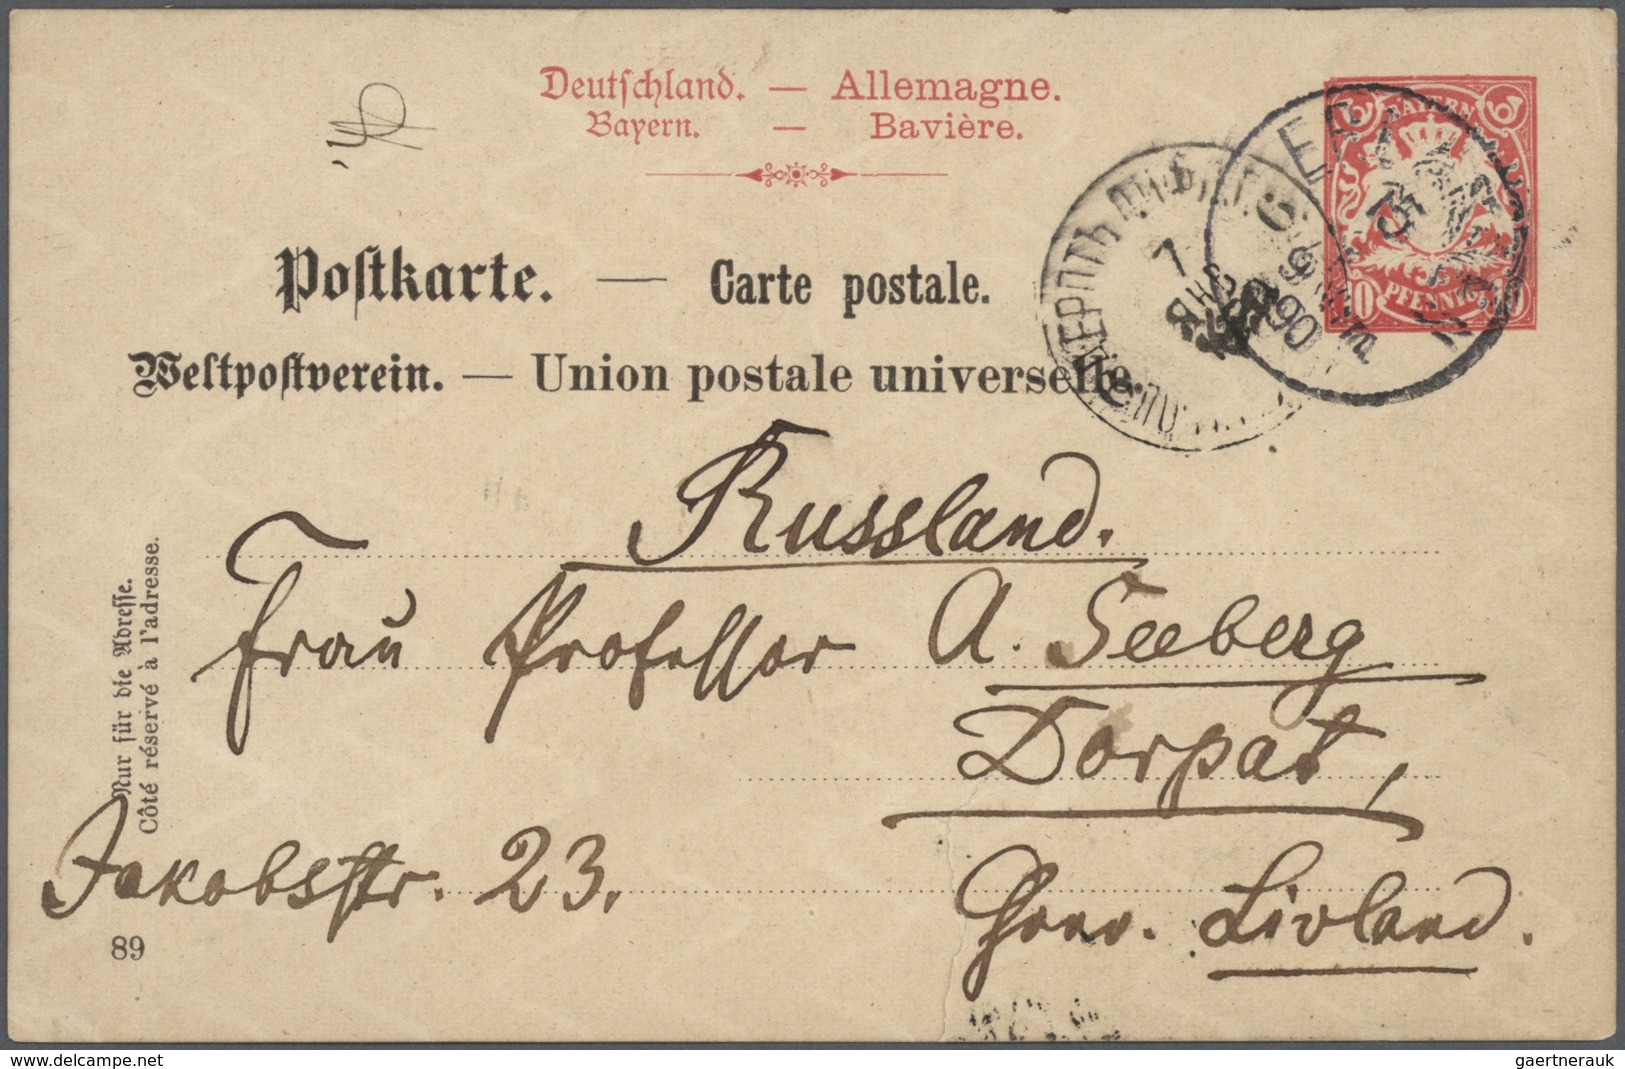 Deutschland. — Allemagne.
Bayern. — Bavière.
BAYERN
PFENNIG
Postkarte. — Carte postale.
Weltpostverein. — Union postale universelle.
7
ЯНВ
6
9
90
Russland.
Frau Professor A. Seeberg
Dorpat,
Jakobsstr. 23.
Gouv. Livland.
Nur für die Adresse.
Côté réservé à l'adresse.
89
delcampe.net
gaertnerauk